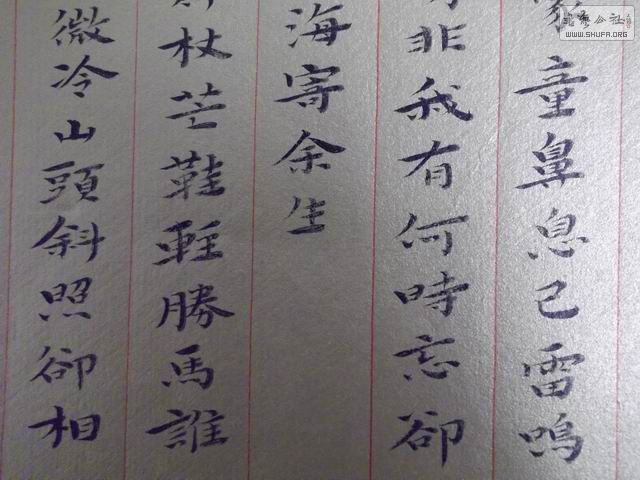 童鼻息已雷鳴
非我有何時忘卻
海寄余生
杖芒鞋輕勝馬誰
微冷山頭斜照卻相
WWW.SHUFA.ORG